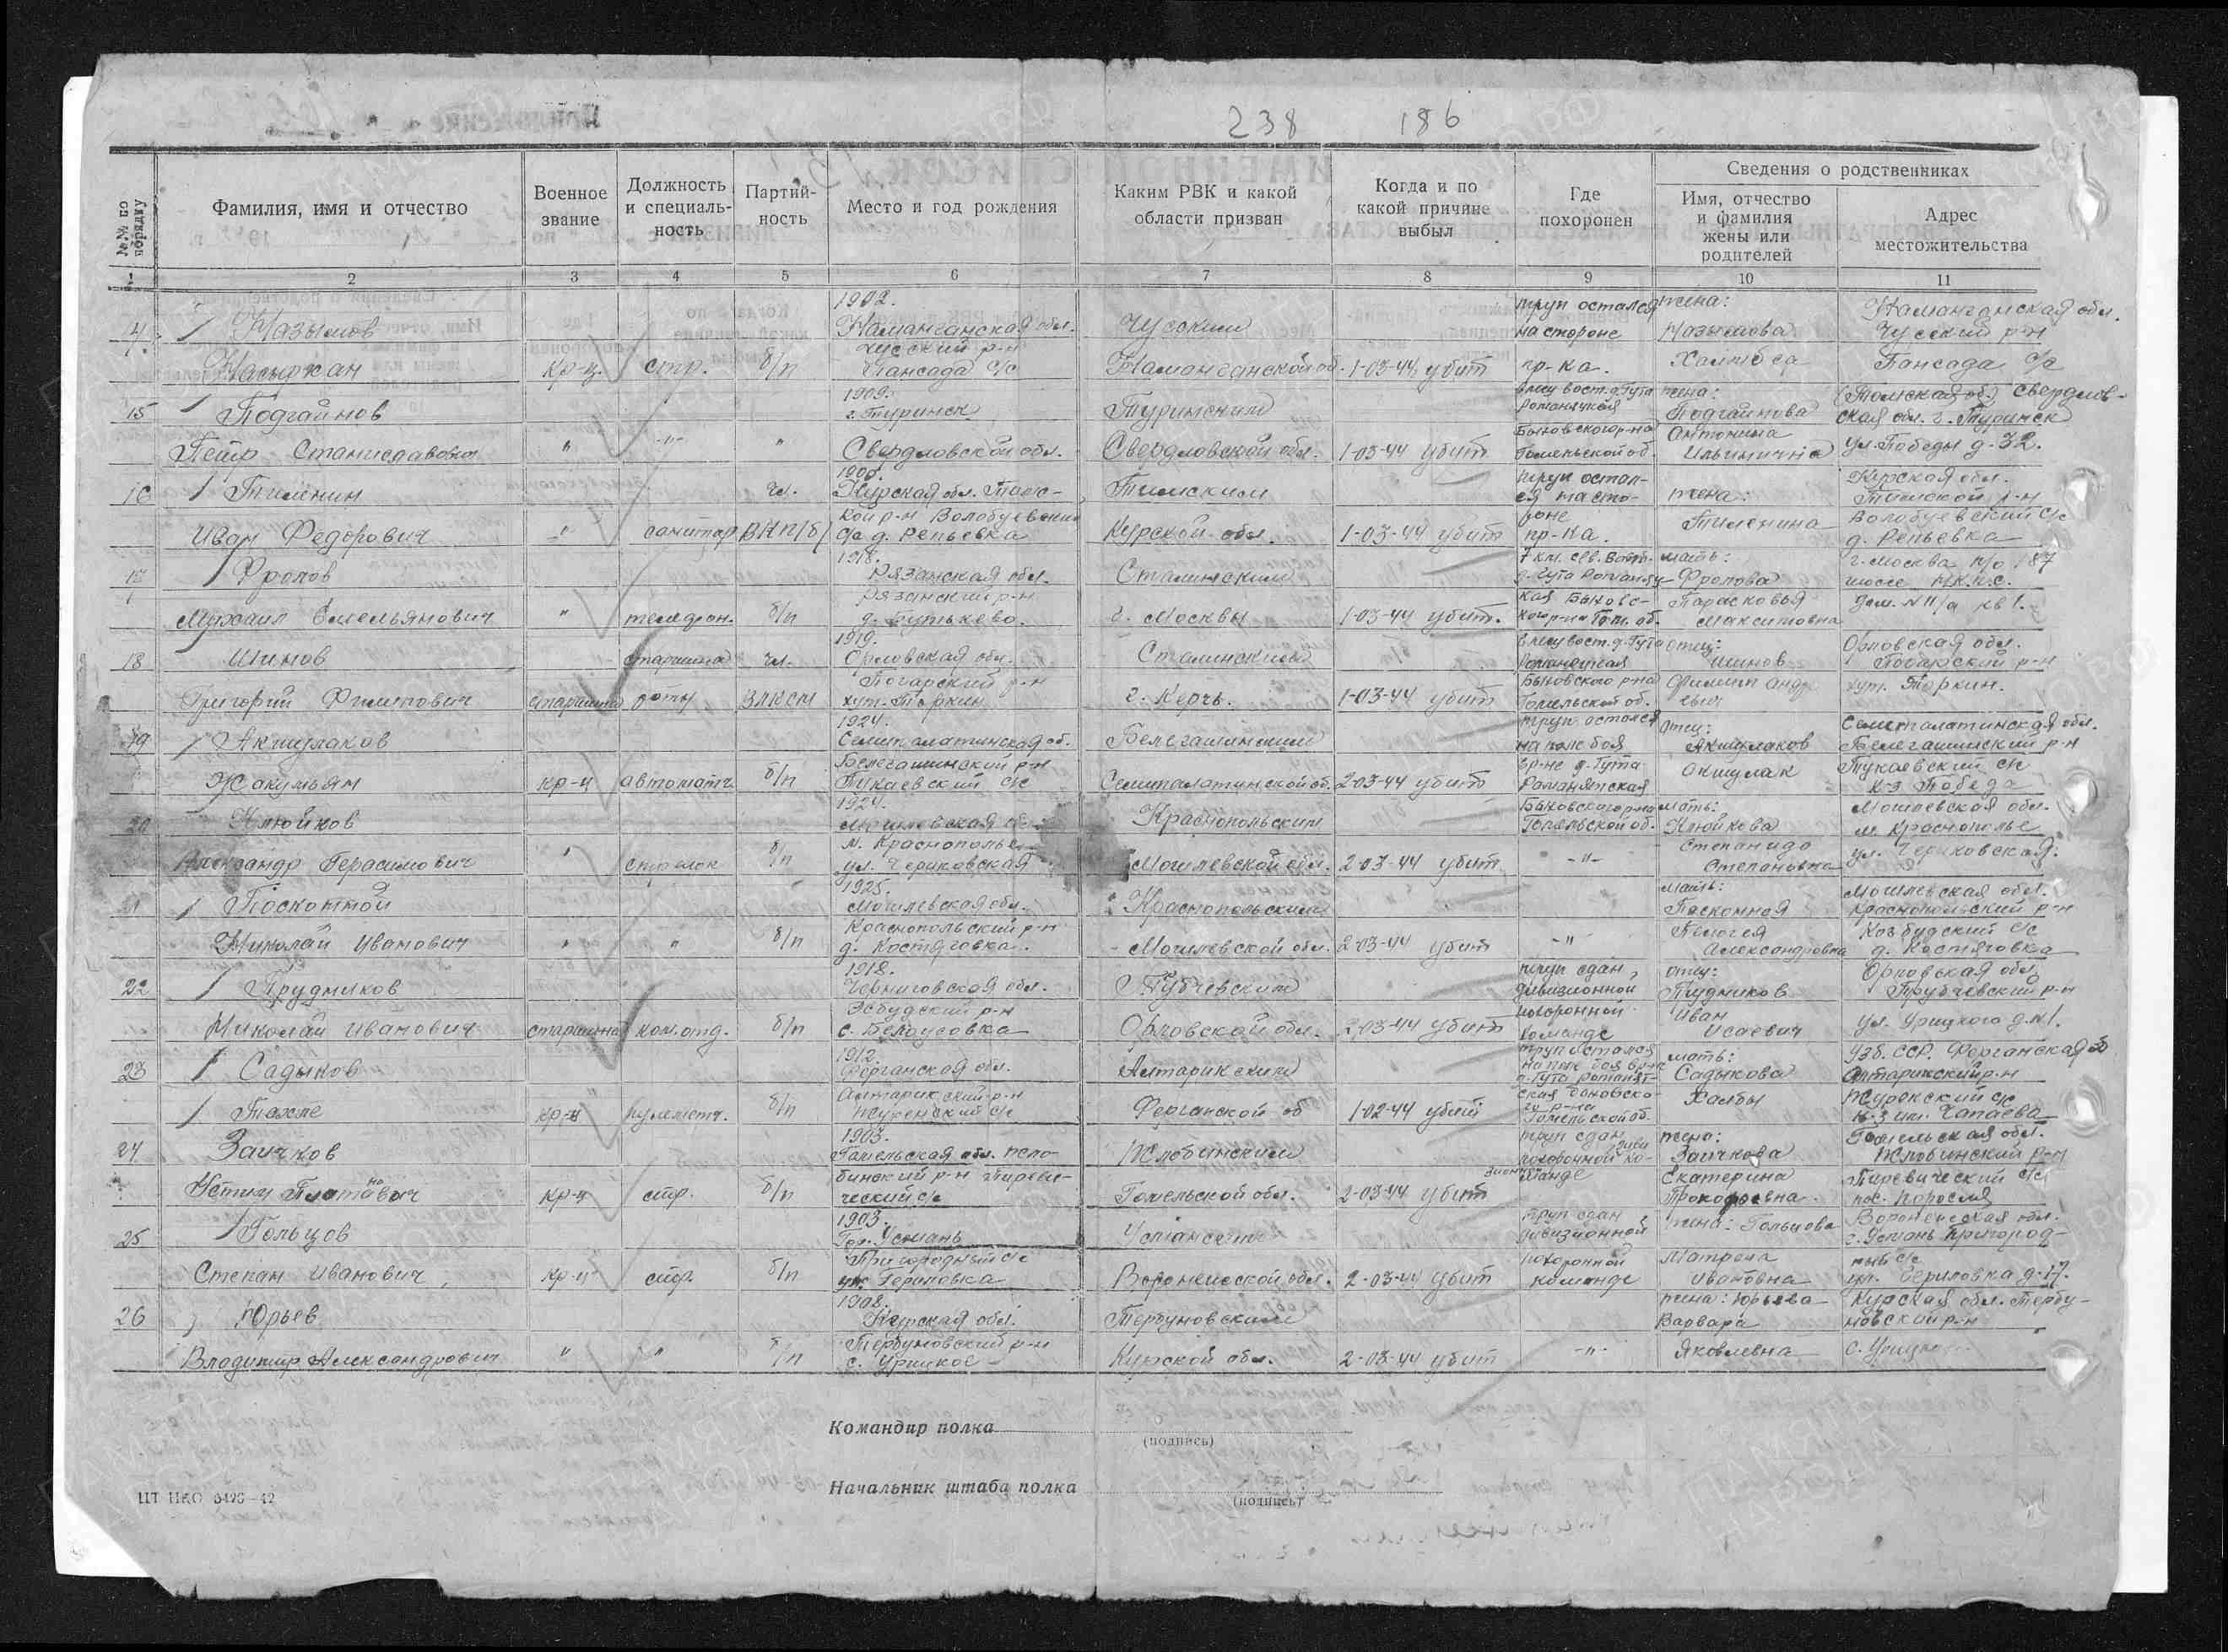 238 186
№№ по порядку
Фамилия, имя и отчество
Военное звание
Должность и специаль-ность
Партий-ность
Место и год рождения
Каким РВК и какой области призван
Когда и по какой причине выбыл
Где похоронен
Сведения о родственниках
Имя, отчество и фамилия жены или родителей
Адрес местожительства
1 2 3 4 5 6 7 8 9 10 11
Назымов
Насыркан
кр-ц. стр. б/п
1902.
Наманганская обл.
Чусский р-н
Пансада с/с
Чусским
Наманганской об.
1-03-44 убит
труп остался
на стороне
пр-ка.
жена:
Назымова
Наманганская обл.
Чусский р-н
Пансада с/с
15 Подгайнов
Петр Станиславович
" -"- "
1909.
г. Туринск
Свердловской обл.
Туринским
Свердловской обл.
1-03-44 убит
жена:
Подгайнова
Антонина
Ильинична
Свердлов-
ская обл. г. Туринск
ул. Победы д-32.
16 Тименин
Иван Федорович
" санитар
чл.
ВКП/б/
1900.
Курская обл. Тимс-
кой р-н Волобуевский
с/с д. Репьевка
Тимским
Курской обл.
1-03-44 убит
труп остал-
ся на сто-
роне
пр-ка.
жена:
Тименина
Курская обл.
Тимской р-н
Волобуевский с/с
д. Репьевка
17 Фролов
Михаил Емельянович
" телефон. б/п
1918.
Рязанская обл.
Рязанский р-н
д. Бутьково.
Сталинским
г. Москвы
1-03-44 убит.
мать:
Фролова
Парасковья
Максимовна
г. Москва п/о 187
шоссе
дом. N 11/а кв 1.
18 Шинов
Григорий Филипович
старшина
старшина
роты
чл.
ВЛКСМ
1919.
Орловская обл.
Погарский р-н
хут. Торкин
Сталинским
г. Керчь.
1-03-44 убит
Быховского р-на
Гомельской об.
отец:
Шинов
Филипп
Орловская обл.
Погарский р-н
хут. Торкин.
19 Акшулаков
Жакумьян
кр-ц автоматч. б/п
1924.
Семипалатинская об.
Белегашинский р-н
Тукаевский с/с
Белегашинским
Семипалатинской об.
2-03-44 убит
труп остался
на поле боя
в р-не д. Гута
Романятская
Быховского р-на
Гомельской об.
отец:
Акшулаков
Окшулак
Семипалатинская обл.
Белегашинский р-н
Тукаевский с/с
к-з Победа
20 Клюйков
Александр Герасимович
" стрелок б/п
1924.
Могилевская об
м. Краснополье
ул. Чериковская
Краснопольским
Могилевской обл.
2-03-44 убит
-"-
мать:
Клюйкова
Степанида
Степановна
Могилевская обл.
м. Краснополье
ул. Чериковская.
Поскотной
Николай Иванович
" " б/п
1925.
Могилевская обл.
Краснопольский р-н
д. Костяговка.
Краснопольским
Могилевской обл.
2-03-44 убит
-"-
мать:
Поскотная
Пелогея
Александровна
Могилевская обл.
Краснопольский р-н
Козбудский с/с
д. Костяговка
22 Прудников
Николай Иванович
старшина ком. отд. б/п
1918.
Черниговская обл.
с. Белоусовка
Трубчевским
Орловской обл.
2-03-44 убит
труп сдан
дивизионной
похоронной
команде
отец:
Иван
Исаевич
Орловская обл.
Трубчевский р-н
ул. Урицкого д.N1.
23 Садыков
Тохте
кр-ц пулеметч. б/п
1912.
Ферганская обл.
Алтарикский р-н
Журекский с/с
Алтарикским
Ферганской об
1-02-44 убит
труп остался
мать:
Садыкова
Халбы
Узб. ССР. Ферганская об
Алтарикский р-н
Журекский с/с
к-з им. Чапаева
24 Заичков
Устин Платонович
кр-ц стр. б/п
1903.
Гомельская обл. Жло-
бинский р-н Пиреви-
ческий с/с
Жлобинским
Гомельской обл.
2-03-44 убит
труп сдан диви
зионной
похоронной ко-
манде
жена:
Заичкова
Екатерина
Прокофьевна.
Гомельская обл.
Жлобинский р-н
Пиревический с/с
пос. Поросля
25 Гольцов
Степан Иванович,
кр-ц стр. б/п
1903.
Гор. Усмань
Пригородный с/с
Усманским
Воронежской обл.
2-03-44 убит
труп сдан
дивизионной
похоронной
команде
жена: Гольцова
Матрена
Ивановна
Воронежская обл.
г. Усмань Пригород-
ный с/с
ул. д-17.
26 Юрьев
Владимир Александрович
" " б/п
1908.
Курская обл.
Тербуновский р-н
с. Урицкое
Тербуновским
Курской обл.
2-03-44 убит
-"-
жена: Юрьева
Варвара
Яковлевна
Курская обл. Тербу-
новский р-н
Командир полка
(подпись)
Начальник штаба полка
(подпись)